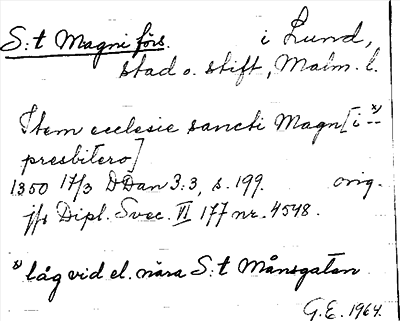 S:t Magni förs. i Lund,
stad o. stift, Malm. l.
Item ecclesie sancti Magn[i--x)
presbitero]
1350 17/3 DDan 3:3, s. 199. orig.
jfr Dipl. Svec. VI 177 nr. 4548.
x) låg vid el. nära S:t Månsgatan
G.E. 1964.